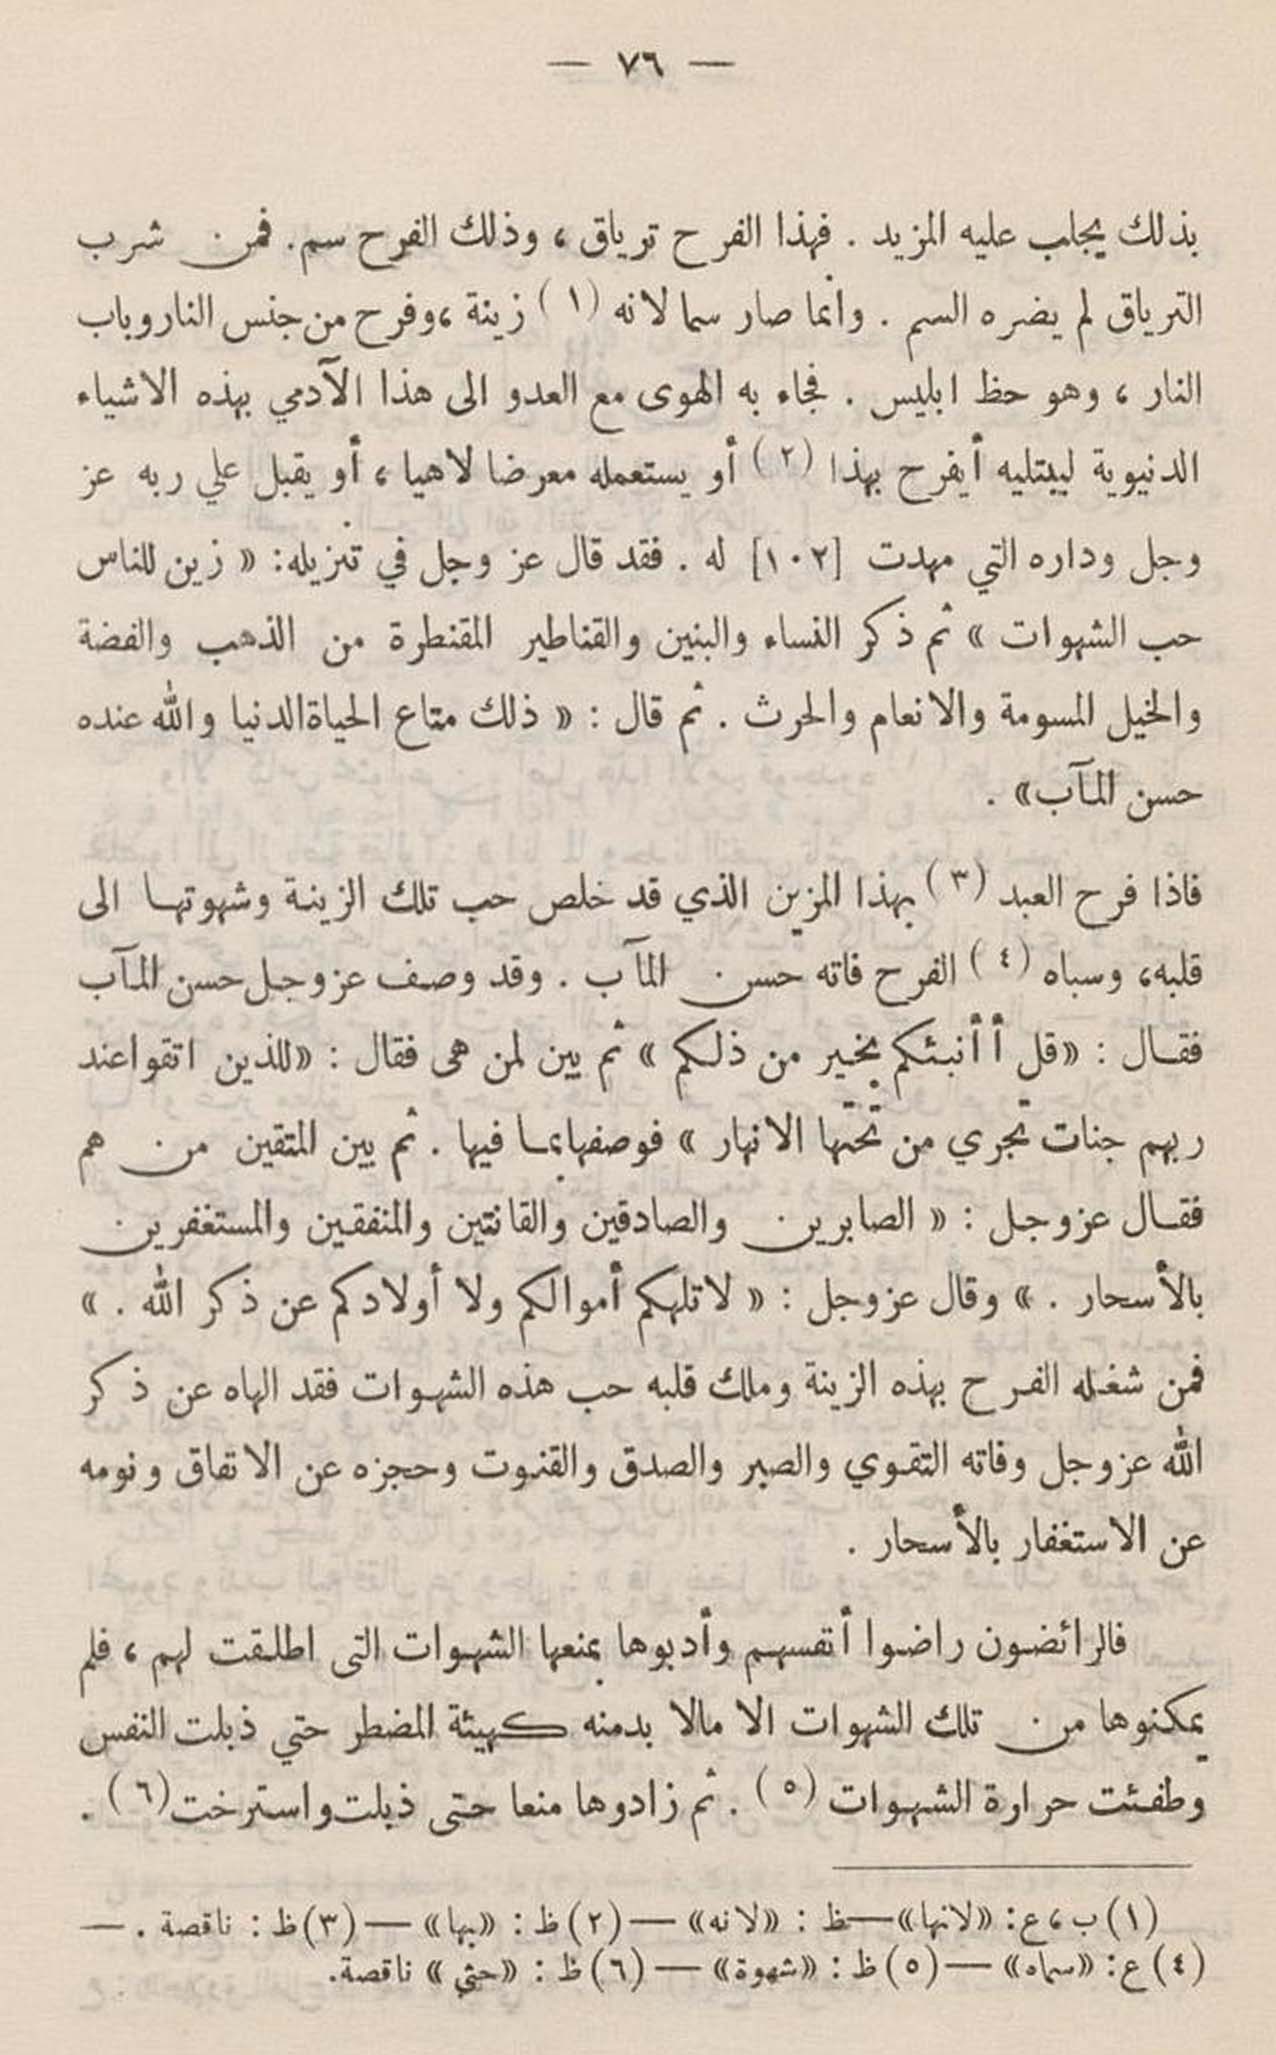 — ٧٦ —
بذلك يجلب عليه المزيد . فهذا الفرح ترياق ، وذلك الفرح سم. فمن شرب
الترياق لم يضره السم . وانما صار سما لانه (١) زينة ،وفرح من جنس النار وباب
النار ، وهو حظ ابليس . فجاء به الهوى مع العدو الى هذا الآدمي بهذه الاشياء
الدنيوية ليبتليه أيفرح بهذا (٢) أو يستعمله معرضا لاهيا ، أو يقبل علي ربه عز
وجل وداره التي مهدت [١٠٢] له . فقد قال عز وجل في تنزيله: « زين للناس
حب الشهوات » ثم ذكر النساء والبنين والقناطير المقنطرة من الذهب والفضة
والخيل المسومة والانعام والحرث . ثم قال : « ذلك متاع الحياة الدنيا والله عنده
حسن المآب» .
فاذا فرح العبد (٣) بهذا المزين الذي قد خلص حب تلك الزينة وشهوتها الى
قلبه، وسباه (٤) الفرح فاته حسن المآب . وقد وصف عز وجل حسن المآب
فقال : «قل أأنبئكم بخير من ذلكم » ثم بين لمن هى فقال : «للذين اتقوا عند
ربهم جنات تجري من تحتها الانهار » فوصفها بما فيها . ثم بين المتقين من هم
فقال عز وجل : « الصابرين والصادقين والقانتين والمنفقين والمستغفرين
بالأسحار . » وقال عز وجل : « لا تلهكم أموالكم ولا أولادكم عن ذكر الله . »
فمن شغله الفرح بهذه الزينة وملك قلبه حب هذه الشهوات فقد الهاه عن ذكر
الله عز وجل وفاته التقوي والصبر والصدق والقنوت وحجزه عن الاتفاق ونومه
عن الاستغفار بالأسحار .
فالرائضون راضوا أنفسهم وأدبوها بمنعها الشهوات التى اطلقت لهم ، فلم
يمكنوها من تلك الشهوات الا مالا بدمنه كهيئة المضطر حتي ذبلت النفس
وطفئت حرارة الشهوات (٥) . ثم زادوها منعا حتى ذبلت واسترخت (٦) .
(١) ب،ع: «لانها»—ظ : «لانه» —(٢) ظ : «بها» —(٣) ظ : ناقصة . —
(٤) ع: «سماه» —(٥) ظ : «شهوة» —(٦) ظ : «حتي » ناقصة.